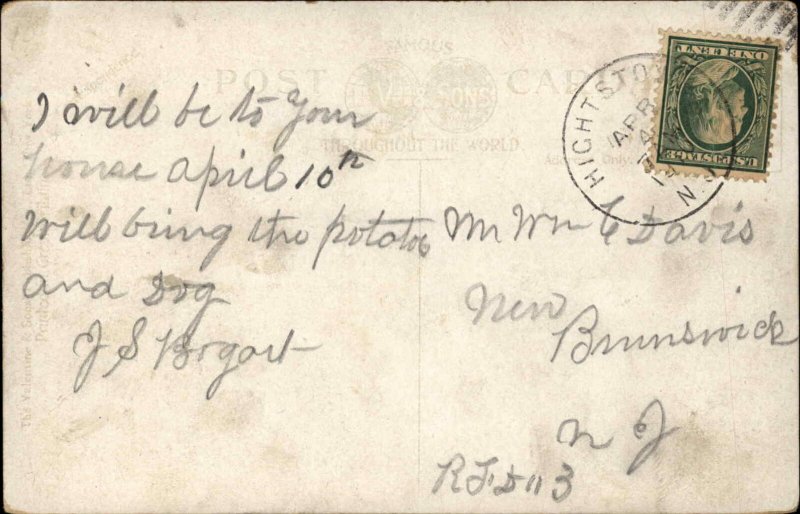 FAMOUS
POST CARD
THROUGHOUT THE WORLD
I will be to Your
house April 10th
Will bring the potatos
and Dog
J S Bogart
Mr Wm C Davis
New
Brunswick
N J
RFD 3
HIGHTSTO
APR
N.J.
ONE CENT
U.S. POSTAGE
The Valentine & Sons